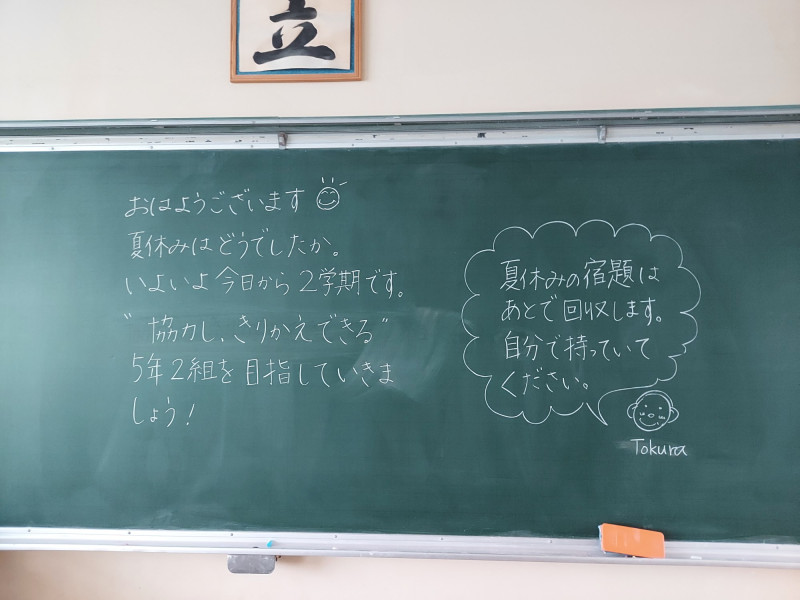 立
おはようございます
夏休みはどうでしたか。
いよいよ今日から2学期です。
"協力し、きりかえできる"
5年2組を目指していきま
しょう!
夏休みの宿題は
あとで回収します。
自分で持っていて
ください。
Tokura